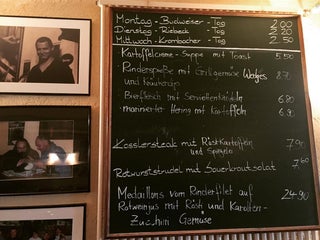 Montag - Budweiser - Tag 2.00
Dienstag - Riebeck - Tag 2.20
Mittwoch - Krombacher - Tag 2.50
Kartoffelcreme - Suppe mit Toast 5.50
Rinderspieße mit Grillgemüse Wedges 8.70
und Kräuterdip
Bierfleisch mit Serviettenknödeln 6.80
marinierter Hering mit Kartoffeln 6.90
Kasslersteak mit Röstkartoffeln 7.90
und Spiegelei
Rotwurststrudel mit Sauerkrautsalat 7.60
Medaillons vom Rinderfilet auf 24.90
Rotweinjus mit Rösti und Karotten -
Zucchini Gemüse